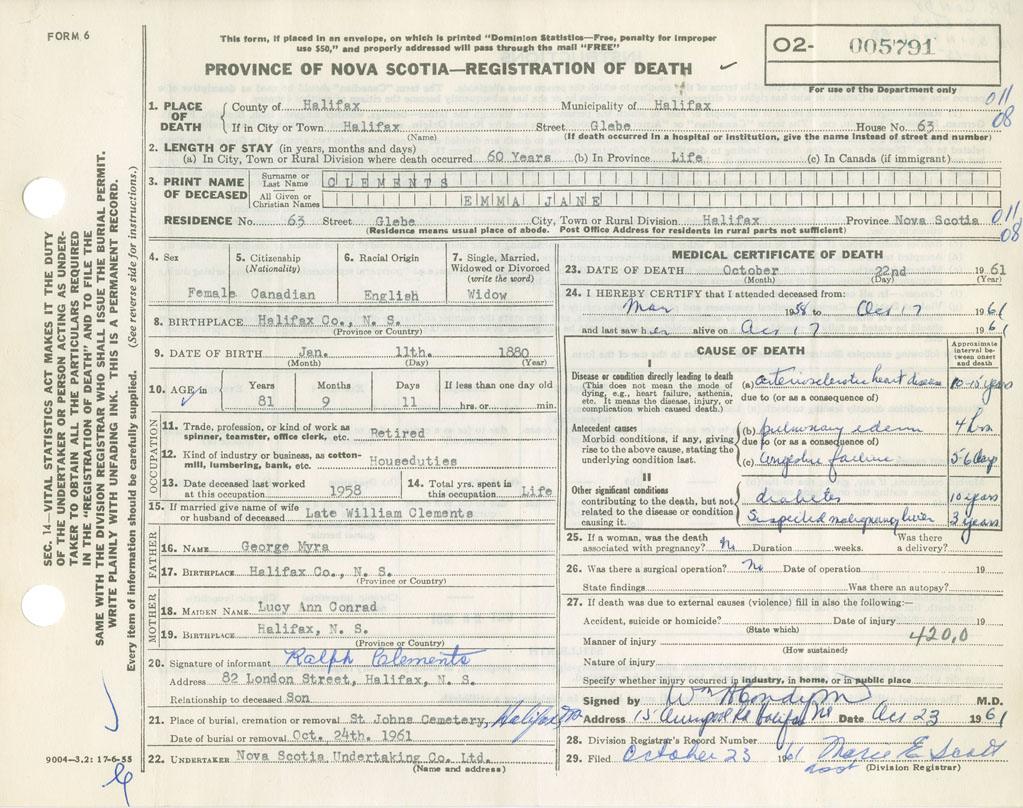 FORM 6
This form, if placed in an envelope, on which is printed "Dominion Statistics—Free, penalty for improper
use $50," and properly addressed will pass through the mail "FREE"
PROVINCE OF NOVA SCOTIA—REGISTRATION OF DEATH
02- 005791
For use of the Department only
1. PLACE OF DEATH
County of Halifax Municipality of Halifax 011
If in City or Town Halifax Street Glebe House No. 63 08
(Name) (If death occurred in a hospital or institution, give the name instead of street and number)
2. LENGTH OF STAY (in years, months and days)
(a) In City, Town or Rural Division where death occurred 60 Years (b) In Province Life (c) In Canada (if immigrant)
3. PRINT NAME OF DECEASED
Surname or Last Name CLEMENTS
All Given or Christian Names EMMA JANE
RESIDENCE No. 63 Street Glebe City, Town or Rural Division Halifax Province Nova Scotia 011
(Residence means usual place of abode. Post Office Address for residents in rural parts not sufficient) 08
4. Sex
Female
5. Citizenship
(Nationality)
Canadian
6. Racial Origin
English
7. Single, Married,
Widowed or Divorced
(write the word)
Widow
8. BIRTHPLACE Halifax Co., N. S.
(Province or Country)
9. DATE OF BIRTH Jan. 11th. 1880
(Month) (Day) (Year)
10. AGE in
Years Months Days If less than one day old
81 9 11 hrs. or min.
OCCUPATION
11. Trade, profession, or kind of work as
spinner, teamster, office clerk, etc. Retired
12. Kind of industry or business, as cotton-
mill, lumbering, bank, etc. Houseduties
13. Date deceased last worked
at this occupation 1958
14. Total yrs. spent in
this occupation Life
15. If married give name of wife
or husband of deceased Late William Clements
FATHER
16. NAME George Myra
17. BIRTHPLACE Halifax Co., N. S.
(Province or Country)
MOTHER
18. MAIDEN NAME Lucy Ann Conrad
19. BIRTHPLACE Halifax, N. S.
(Province or Country)
20. Signature of informant Ralph Clements
Address 82 London Street, Halifax, N. S.
Relationship to deceased Son
21. Place of burial, cremation or removal St Johns Cemetery, Halifax
Date of burial or removal Oct. 24th. 1961
22. UNDERTAKER Nova Scotia Undertaking Co. Ltd.
(Name and address)
MEDICAL CERTIFICATE OF DEATH
23. DATE OF DEATH October 22nd 1961
(Month) (Day) (Year)
24. I HEREBY CERTIFY that I attended deceased from:
Mar 1958 to Oct 17 1961
and last saw her alive on Oct 17 1961
CAUSE OF DEATH
Approximate
interval be-
tween onset
and death
I
Disease or condition directly leading to death
(This does not mean the mode of
dying, e.g., heart failure, asthenia,
etc. It means the disease, injury, or
complication which caused death.)
(a) arteriosclerotic heart disease 10-15 years
due to (or as a consequence of)
Antecedent causes
Morbid conditions, if any, giving
rise to the above cause, stating the
underlying condition last.
(b) pulmonary edema 4 hrs
due to (or as a consequence of)
(c) congestive failure 5-6 days
II
Other significant conditions
contributing to the death, but not
related to the disease or condition
causing it.
diabetes 10 years
Suspected malignancy liver 3 years
25. If a woman, was the death Was there
associated with pregnancy? No Duration weeks. a delivery?
26. Was there a surgical operation? No Date of operation 19
State findings Was there an autopsy?
27. If death was due to external causes (violence) fill in also the following:—
Accident, suicide or homicide? Date of injury 19
(State which)
Manner of injury 420.0
(How sustained)
Nature of injury
Specify whether injury occurred in industry, in home, or in public place
Signed by M.D.
Address Date Oct 23 1961
28. Division Registrar's Record Number
29. Filed October 23 1961 Marie E Scott
(Division Registrar)
SEC. 14—VITAL STATISTICS ACT MAKES IT THE DUTY
OF THE UNDERTAKER OR PERSON ACTING AS UNDER-
TAKER TO OBTAIN ALL THE PARTICULARS REQUIRED
IN THE "REGISTRATION OF DEATH" AND TO FILE THE
SAME WITH THE DIVISION REGISTRAR WHO SHALL ISSUE THE BURIAL PERMIT.
WRITE PLAINLY WITH UNFADING INK. THIS IS A PERMANENT RECORD.
Every item of information should be carefully supplied. (See reverse side for instructions.)
9004—3.2: 17-6-55